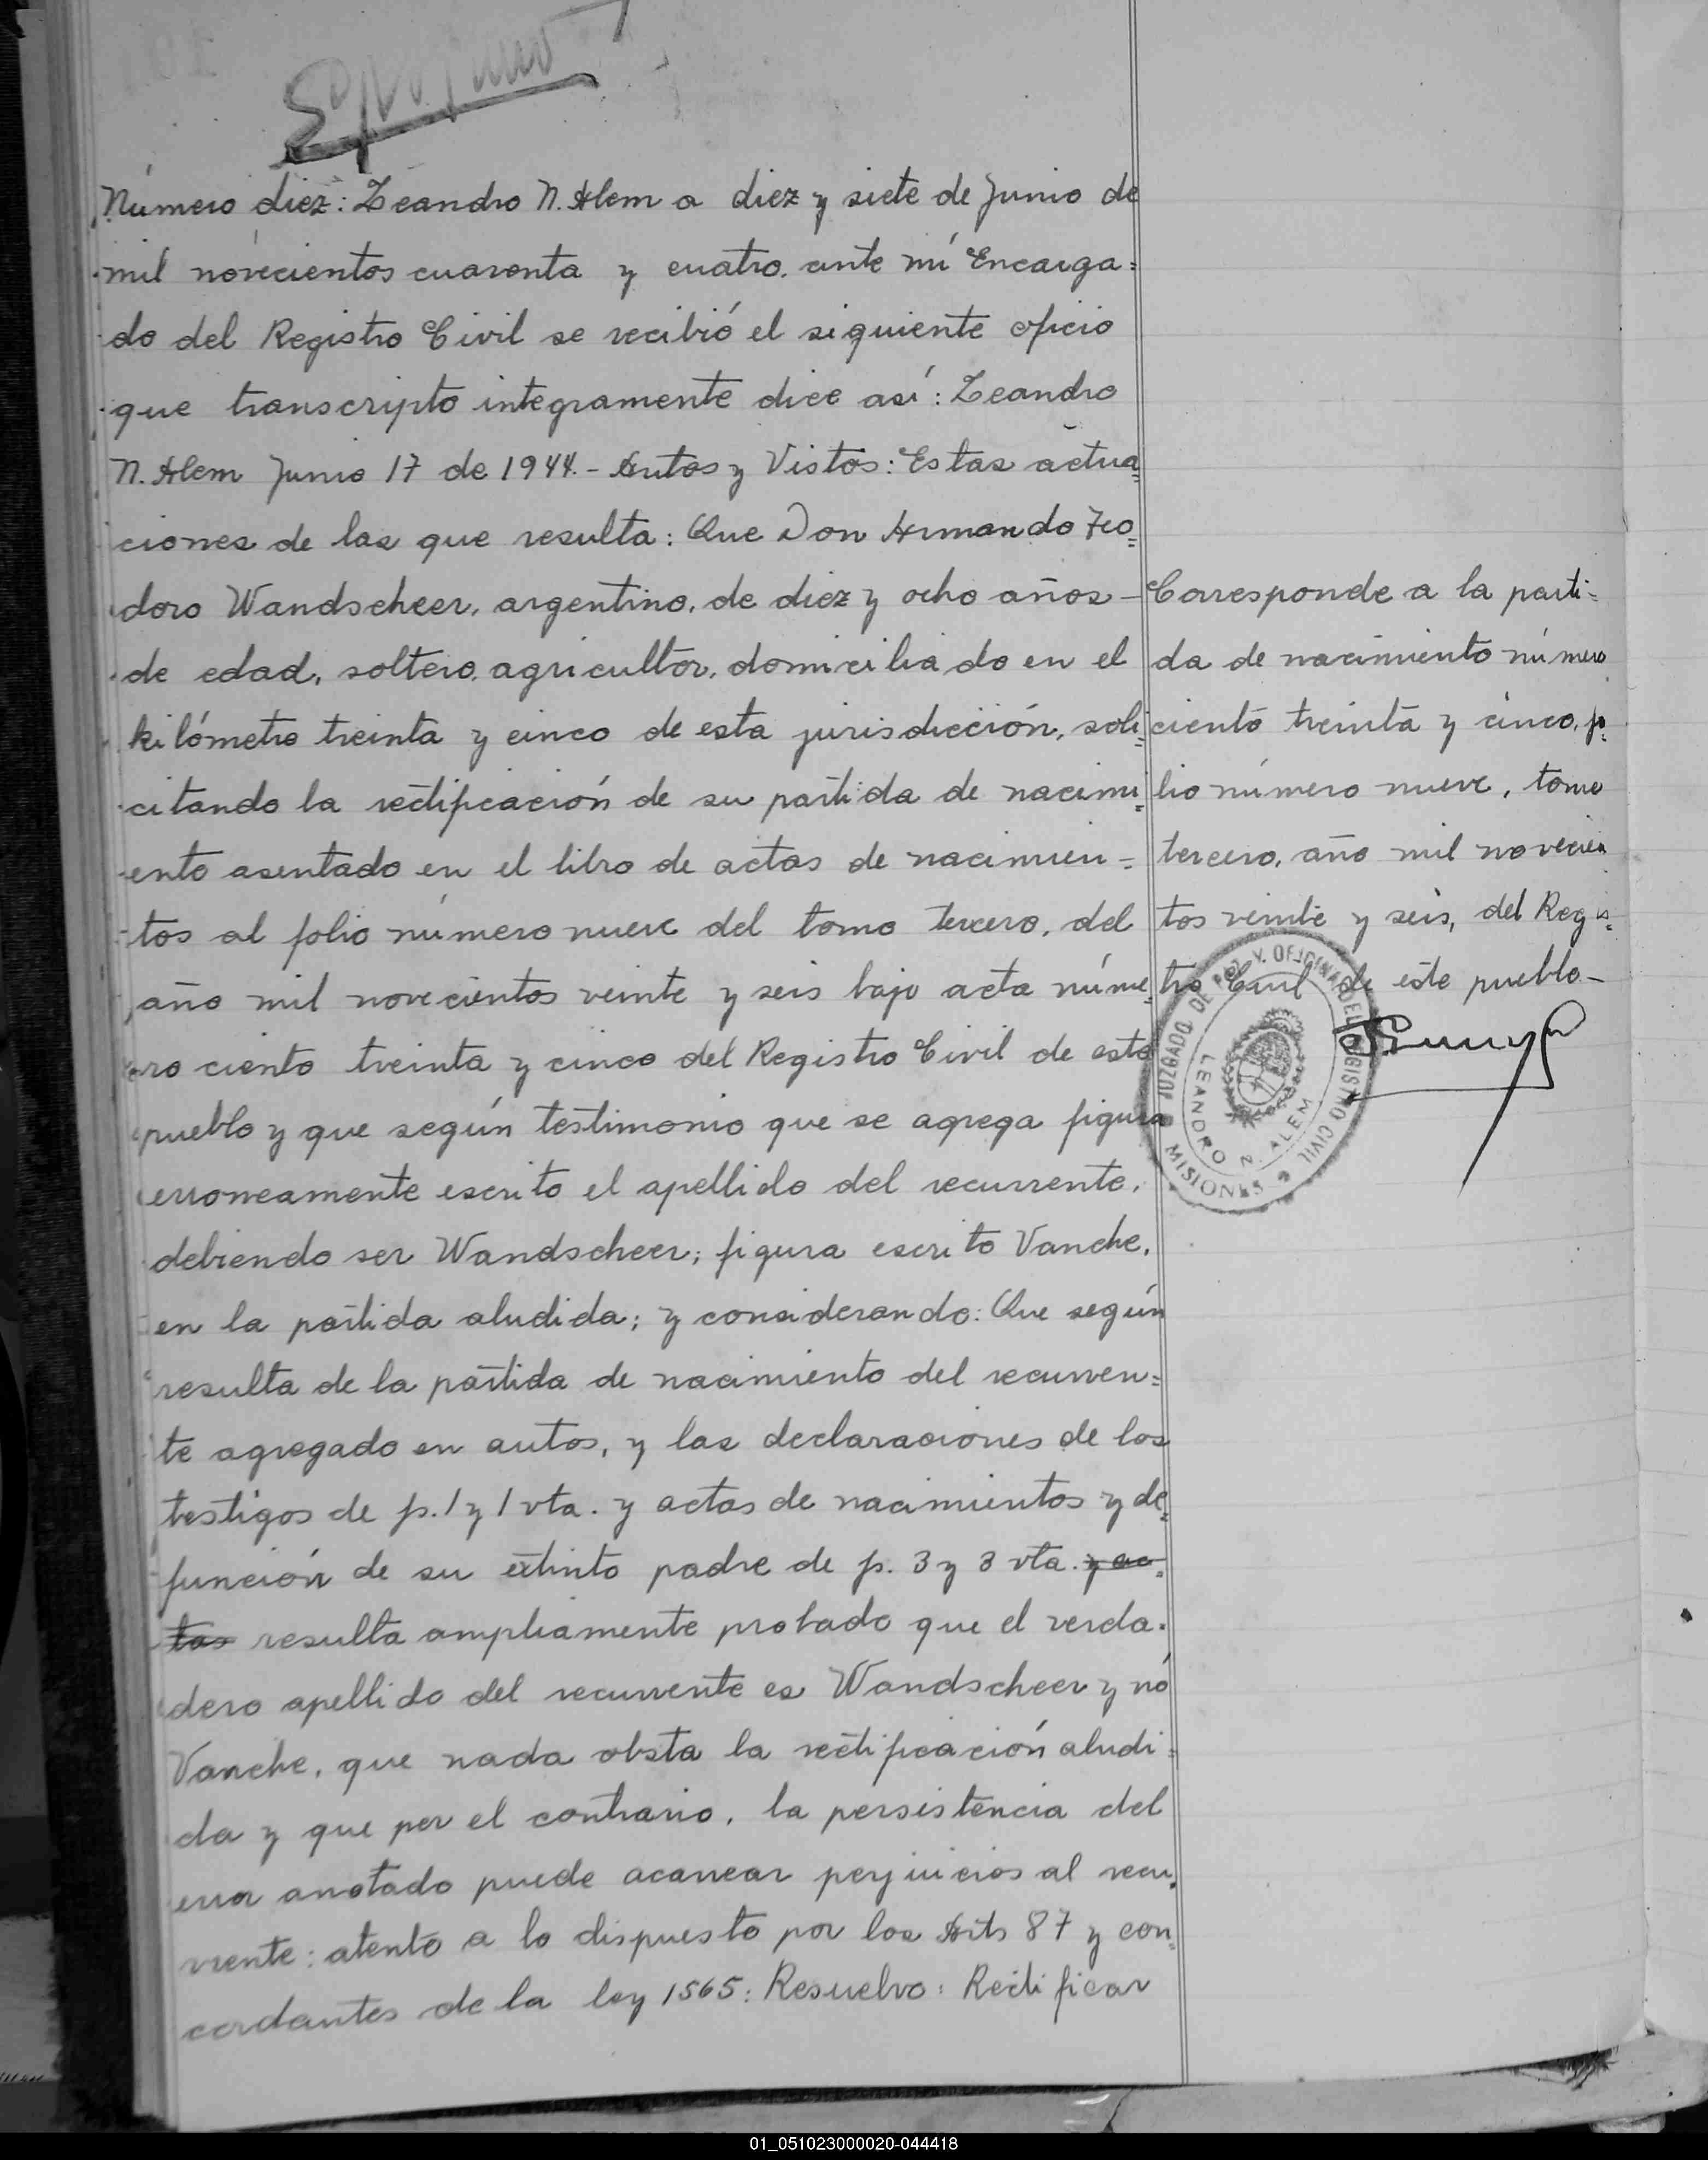 Número diez: Leandro N. Alem a diez y siete de Junio de
mil novecientos cuarenta y cuatro. ante mí Encarga=
do del Registro Civil se recibió el siguiente oficio
que transcripto integramente dice así: Leandro
N. Alem Junio 17 de 1944.- Autos y Vistos: Estas actua=
ciones de las que resulta: Que Don Armando Teo=
doro Wandscheer, argentino, de diez y ocho años -
de edad, soltero, agricultor, domiciliado en el
kilómetro treinta y cinco de esta jurisdicción, soli=
citando la rectificación de su partida de nacimi=
ento asentado en el libro de actas de nacimien=
tos al folio número nueve del tomo tercero, del
año mil novecientos veinte y seis bajo acta núme=
ro ciento treinta y cinco del Registro Civil de este
pueblo y que según testimonio que se agrega figura
erroneamente escrito el apellido del recurrente,
debiendo ser Wandscheer; figura escrito Vanche,
en la partida aludida; y considerando: Que según
resulta de la partida de nacimiento del recurren=
te agregado en autos, y las declaraciones de los
testigos de fs. 1 y 1 vta. y actas de nacimientos y de=
función de su extinto padre de fs. 3 y 3 vta. y ac=
tas resulta ampliamente probado que el verda=
dero apellido del recurrente es Wandscheer y nó
Vanche, que nada obsta la rectificación aludi=
da y que por el contrario, la persistencia del
error anotado puede acarrear perjuicios al recu=
rrente: atento a lo dispuesto por los Arts 87 y con=
cordantes de la ley 1565: Resuelvo: Rectificar
Corresponde a la parti=
da de nacimiento número
ciento treinta y cinco, fo=
lio número nueve, tomo
tercero, año mil novecien
tos veinte y seis, del Regis=
tro Civil de este pueblo-
JUZGADO DE PAZ Y OFICINA DEL REGISTRO CIVIL
LEANDRO N. ALEM
MISIONES
01_051023000020-044418